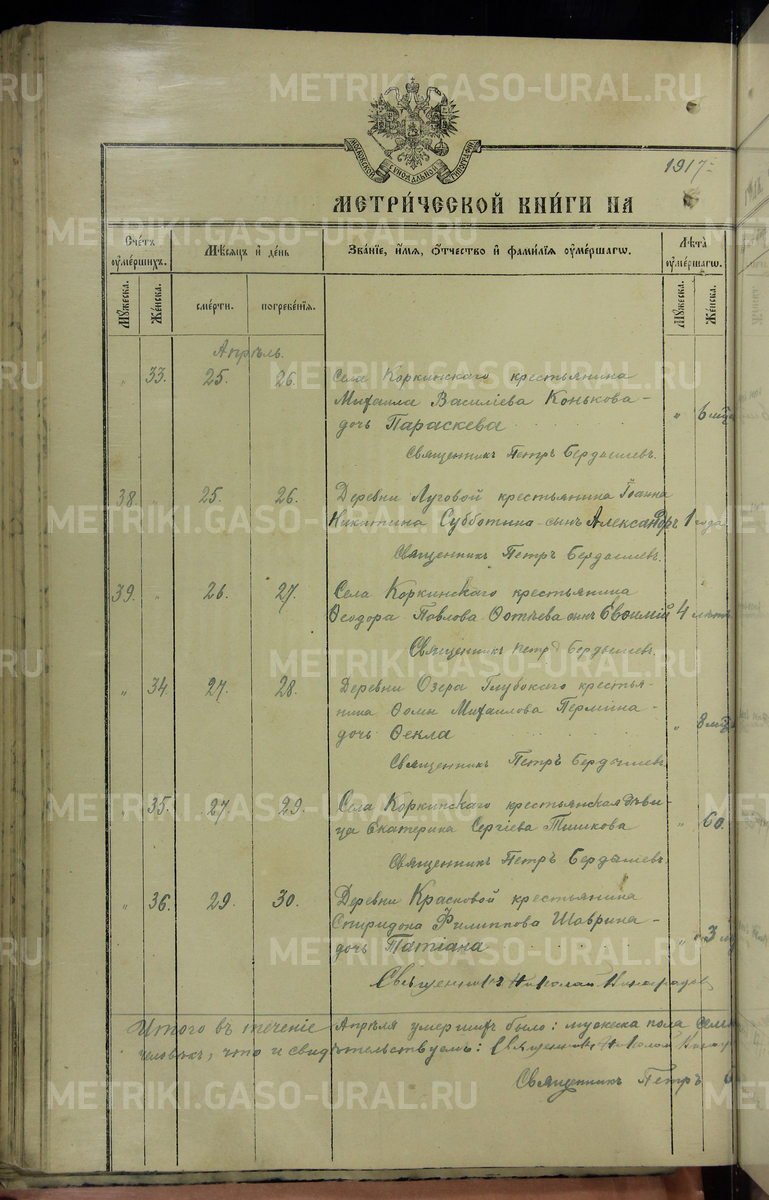 METRIKI.GASO-URAL.RU
МОСКОВСКОЙ СѴНОДАЛЬНОЙ ТИПОГРАФІИ
1917 г.
МЕТРИ́ЧЕСКОЙ КНИ́ГИ НА
Сче́тъ оуме́ршихъ.
Мѣ́сяцъ и де́нь
Зва́ніе, и́мя, о́тчество и фами́лія оуме́ршагѡ.
Лѣта̀ оуме́ршагѡ.
Му́жеска.
Же́нска.
сме́рти.
погребе́нія.
Му́жеска.
Же́нска.
Апрѣль.
" 33. 25. 26. Села Коркинскаго крестьянина
Михаила Василіева Конькова -
дочь Параскева " 6 мѣс
Священникъ Петръ Бердышевъ.
38. " 25. 26. Деревни Луговой крестьянина Іоанна
Никитина Субботина - сынъ Александръ 1 года
Священникъ Петръ Бердышевъ.
39. " 26. 27. Села Коркинскаго крестьянина
Ѳеодора Павлова сынъ Евѳимій 4 лѣтъ
Священникъ Петръ Бердышевъ.
" 34. 27. 28. Деревни Озера Глубокаго крестья-
нина Ѳомы Михаилова Пермина -
дочь Ѳекла " 8 мѣс
Священникъ Петръ Бердышевъ
" 35. 27. 29. Села Коркинскаго крестьянская дѣви
ца Екатерина Сергіева Тишкова " 60.
Священникъ Петръ Бердышевъ
" 36. 29. 30. Деревни Красновой крестьянина
Спиридона Филиппова Шаврина -
дочь Татіана " 3
Священникъ Николай Виноградовъ
Итого въ теченіе Апрѣля умершихъ было: мужеска пола семь
человѣкъ, что и свидѣтельствуемъ: Священникъ Николай
Священникъ Петръ